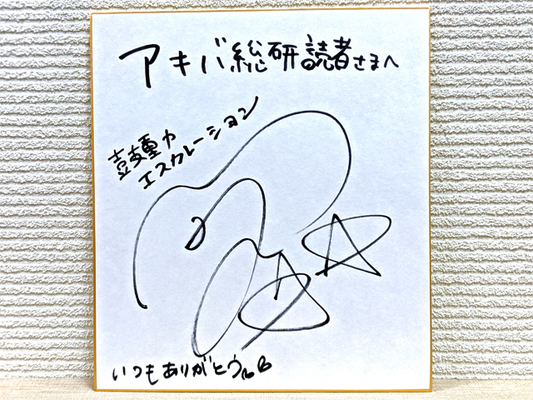 アキバ総研読者さまへ
鼓動エスカレーション
いつもありがとう